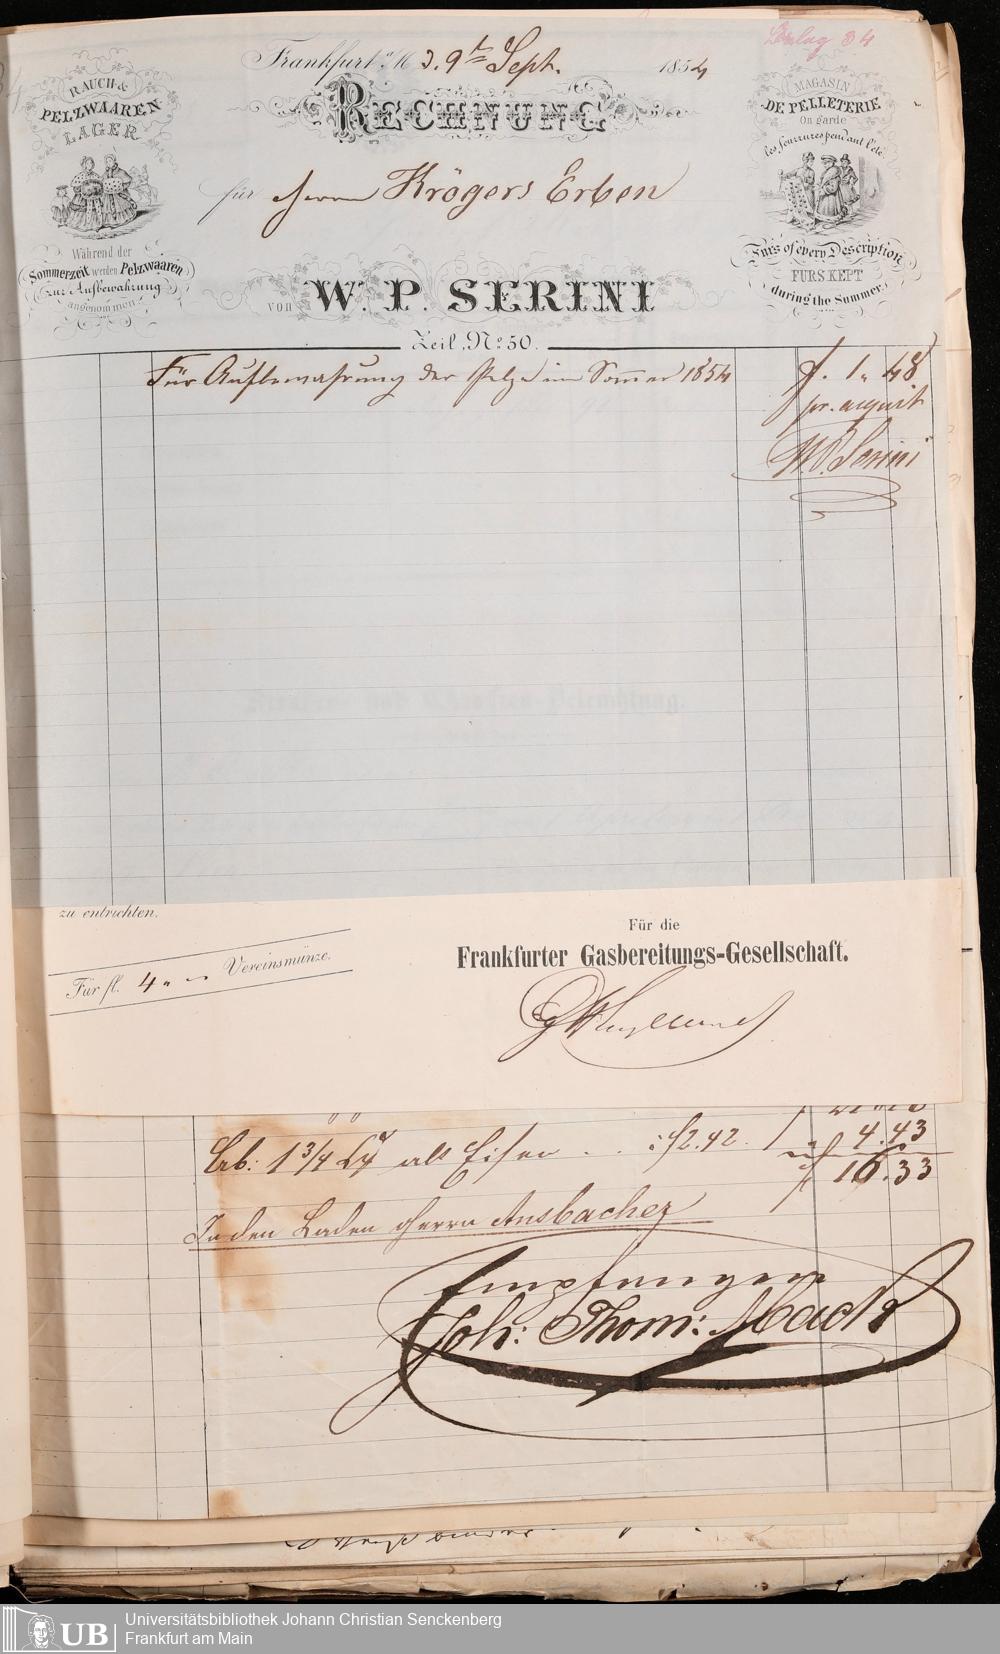 Beilag 34
Frankfurt a/M d. 9t Sept. 1854
RAUCH- &
PELZWAAREN
LAGER
Während der
Sommerzeit werden Pelzwaaren
zur Aufbewahrung
angenommen
RECHNUNG
für Herrn Krögers Erben
VON W. P. SERINI
Zeil, No. 50.
MAGASIN
DE PELLETERIE
On garde
les fourrures pendant l'été
Furs of every Description
FURS KEPT
during the Summer.
Für Aufbewahrung der Pelze im Sommer 1854 f. 1 „ 48
pr. acquit
W. P. Serini
zu entrichten.
Für fl. 4 „ — Vereinsmünze.
Für die
Frankfurter Gasbereitungs-Gesellschaft.
1 3/4 alt Eisen . . : f 2.42. 4.43
f 16.33
In den Laden Herrn Ansbacher
Empfangen
Joh: Thom: Mack
UB
Universitätsbibliothek Johann Christian Senckenberg
Frankfurt am Main